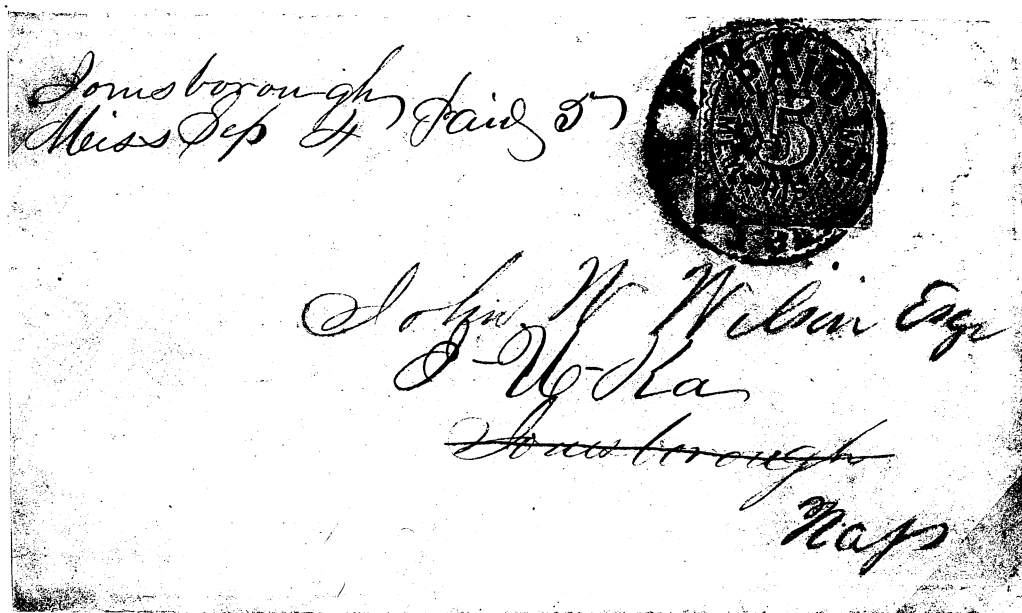 Jonesborough Paid 5
Miss Sep 4
PAID
5
John W Wilson Esqr
I-U-Ka
Jonesborough
Miss